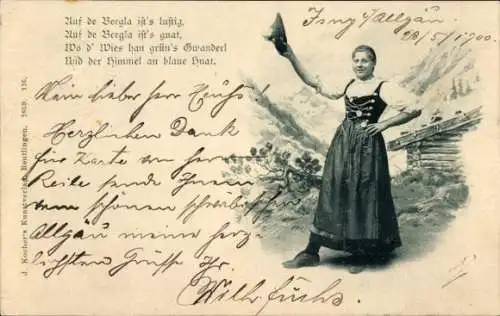 Auf de Bergla ist's luftig,
Auf de Bergla ist's guat,
Wo d' Wies han grün's Gwanderl
Und der Himmel an blaue Huat.
Isny i/Allgäu
28/5/1900.
Mein lieber Herr Früchs
Herzlichen Dank
für Karte von Herr
sende Ihnen
vom schönen schwäbischen
Allgäu meine herz-
lichsten Grüße Ihr
J. Kocher's Kunstverlag, Reutlingen. 1859. 136.